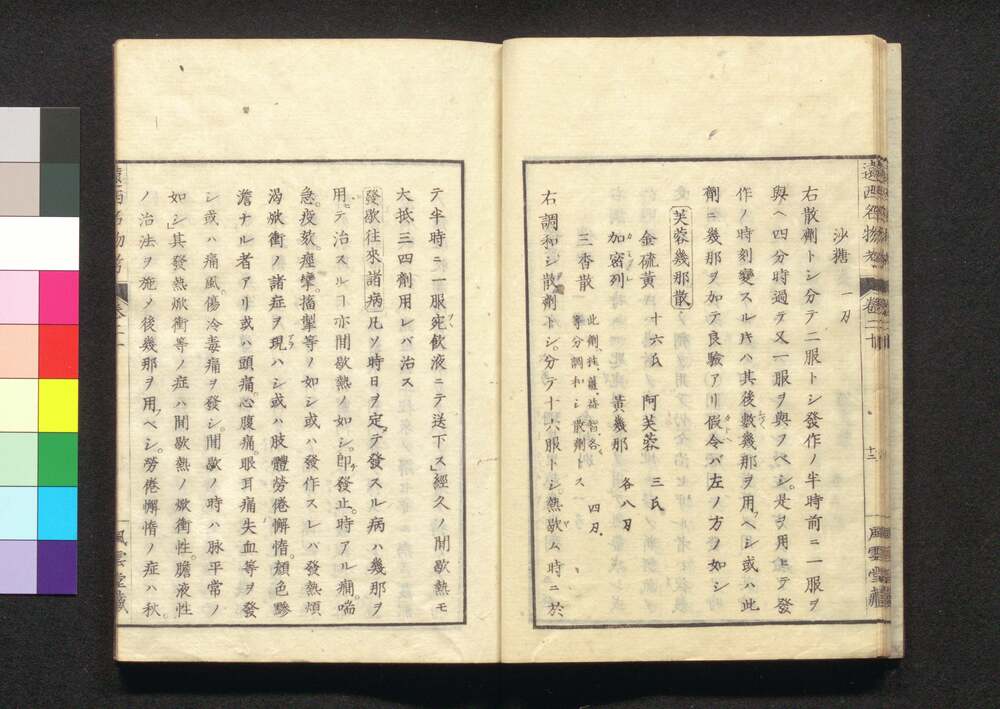 遠西名物考 卷二十 十二 風雲堂藏
沙糖 一刃
右散劑トシ分テ二服トシ發作ノ半時前ニ一服ヲ
與ヘ四分時過テ又一服ヲ與フベシ。是ヲ用上テ發
作ノ時刻變スル片ハ其後數幾那ヲ用ヘシ或ハ此
劑ニ幾那ヲ加テ良驗アリ假令バ左ノ方ノ如シ
芙蓉幾那散
金硫黄 十六氏 阿芙蓉 三氏
加密列 黄幾那 各八刃
三香散 此劑、桂、薑、益智、各等分調和シ散劑トス 四刃
右調和シ散劑トシ。分テ十六服トシ。熱歇ム時ニ於
テ半時ニ一服宛飲液ニテ送下ス」經久ノ間歇熱モ
大抵三四劑用レバ治ス
發歇往來諸病 凡ソ時日ヲ定テ發スル病ハ幾那ヲ
用テ治スルヿ亦間歇熱ノ如シ。即發止。時アル癇。喘
急。疫欬。痙攣。搐掣等ノ如シ或ハ發作スレバ發熱煩
渴焮衝ノ諸症ヲ現ハシ或ハ肢體勞倦懈惰。顔色黲
澹ナル者アリ或ハ頭痛。心腹痛。眼耳痛失血等ヲ發
シ或ハ痛風。傷冷毒痛ヲ發シ。間歇ノ時ハ脉平常ノ
如シ」其發熱焮衝等ノ症ハ間歇熱ノ焮衝性。膽液性
ノ治法ヲ施メ後幾那ヲ用ベシ。勞倦懈惰ノ症ハ秋